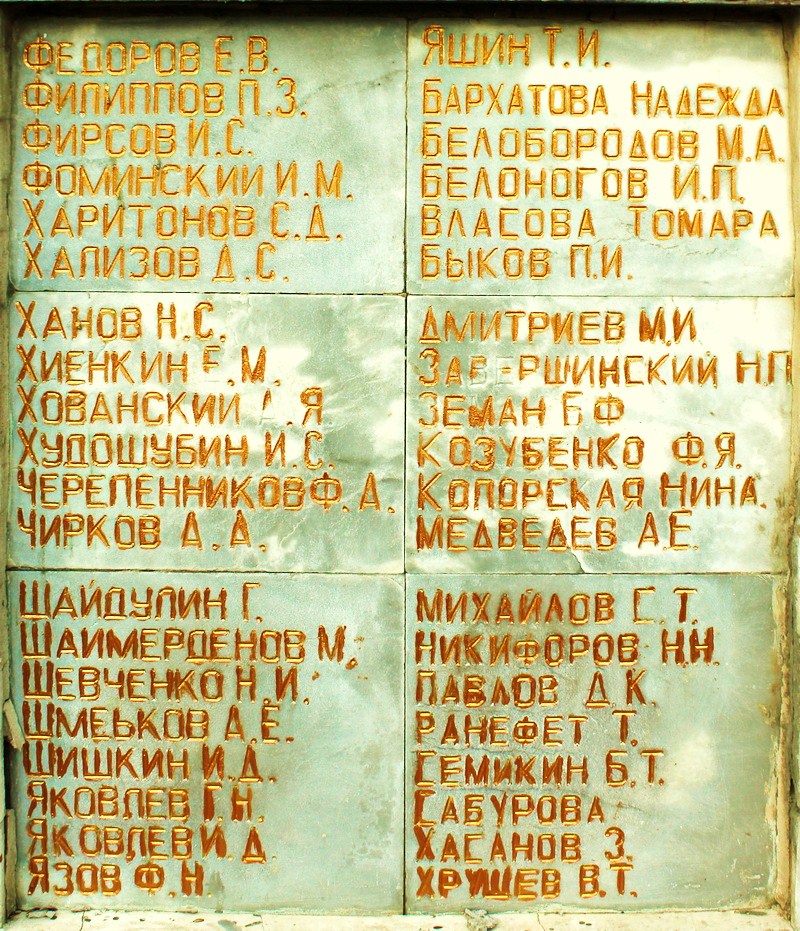 ФЕДОРОВ Е.В.
ФИЛИППОВ П.З.
ФИРСОВ И.С.
ФОМИНСКИЙ И.М.
ХАРИТОНОВ С.Д.
ХАЛИЗОВ Д.С.
ХАНОВ Н.С.
ХИЕНКИН Е.М.
ХОВАНСКИЙ А.Я
ХУДОШУБИН И.С.
ЧЕРЕПЕННИКОВ Ф.А.
ЧИРКОВ А.А.
ШАЙДУЛИН Г.
ШАИМЕРДЕНОВ М.
ШЕВЧЕНКО Н.И.
ШМЕЬКОВ А.Е.
ШИШКИН И.Д.
ЯКОВЛЕВ Г.Н.
ЯКОВЛЕВ И.Д.
ЯЗОВ Ф.Н.
ЯШИН Т.И.
БАРХАТОВА НАДЕЖДА
БЕЛОБОРОДОВ М.А.
БЕЛОНОГОВ И.П.
ВЛАСОВА ТОМАРА
БЫКОВ П.И.
ДМИТРИЕВ М.И
ЗАВЕРШИНСКИЙ Н.П
ЗЕМАН Б.Ф
КОЗУБЕНКО Ф.Я.
КОПОРСКАЯ НИНА.
МЕДВЕДЕВ А.Е.
МИХАЙЛОВ С.Т.
НИКИФОРОВ Н.Н.
ПАВЛОВ Д.К.
РАНЕФЕТ Т.
СЕМИКИН Б.Т.
САБУРОВА
ХАГАНОВ З.
ХРУЩЕВ В.Т.